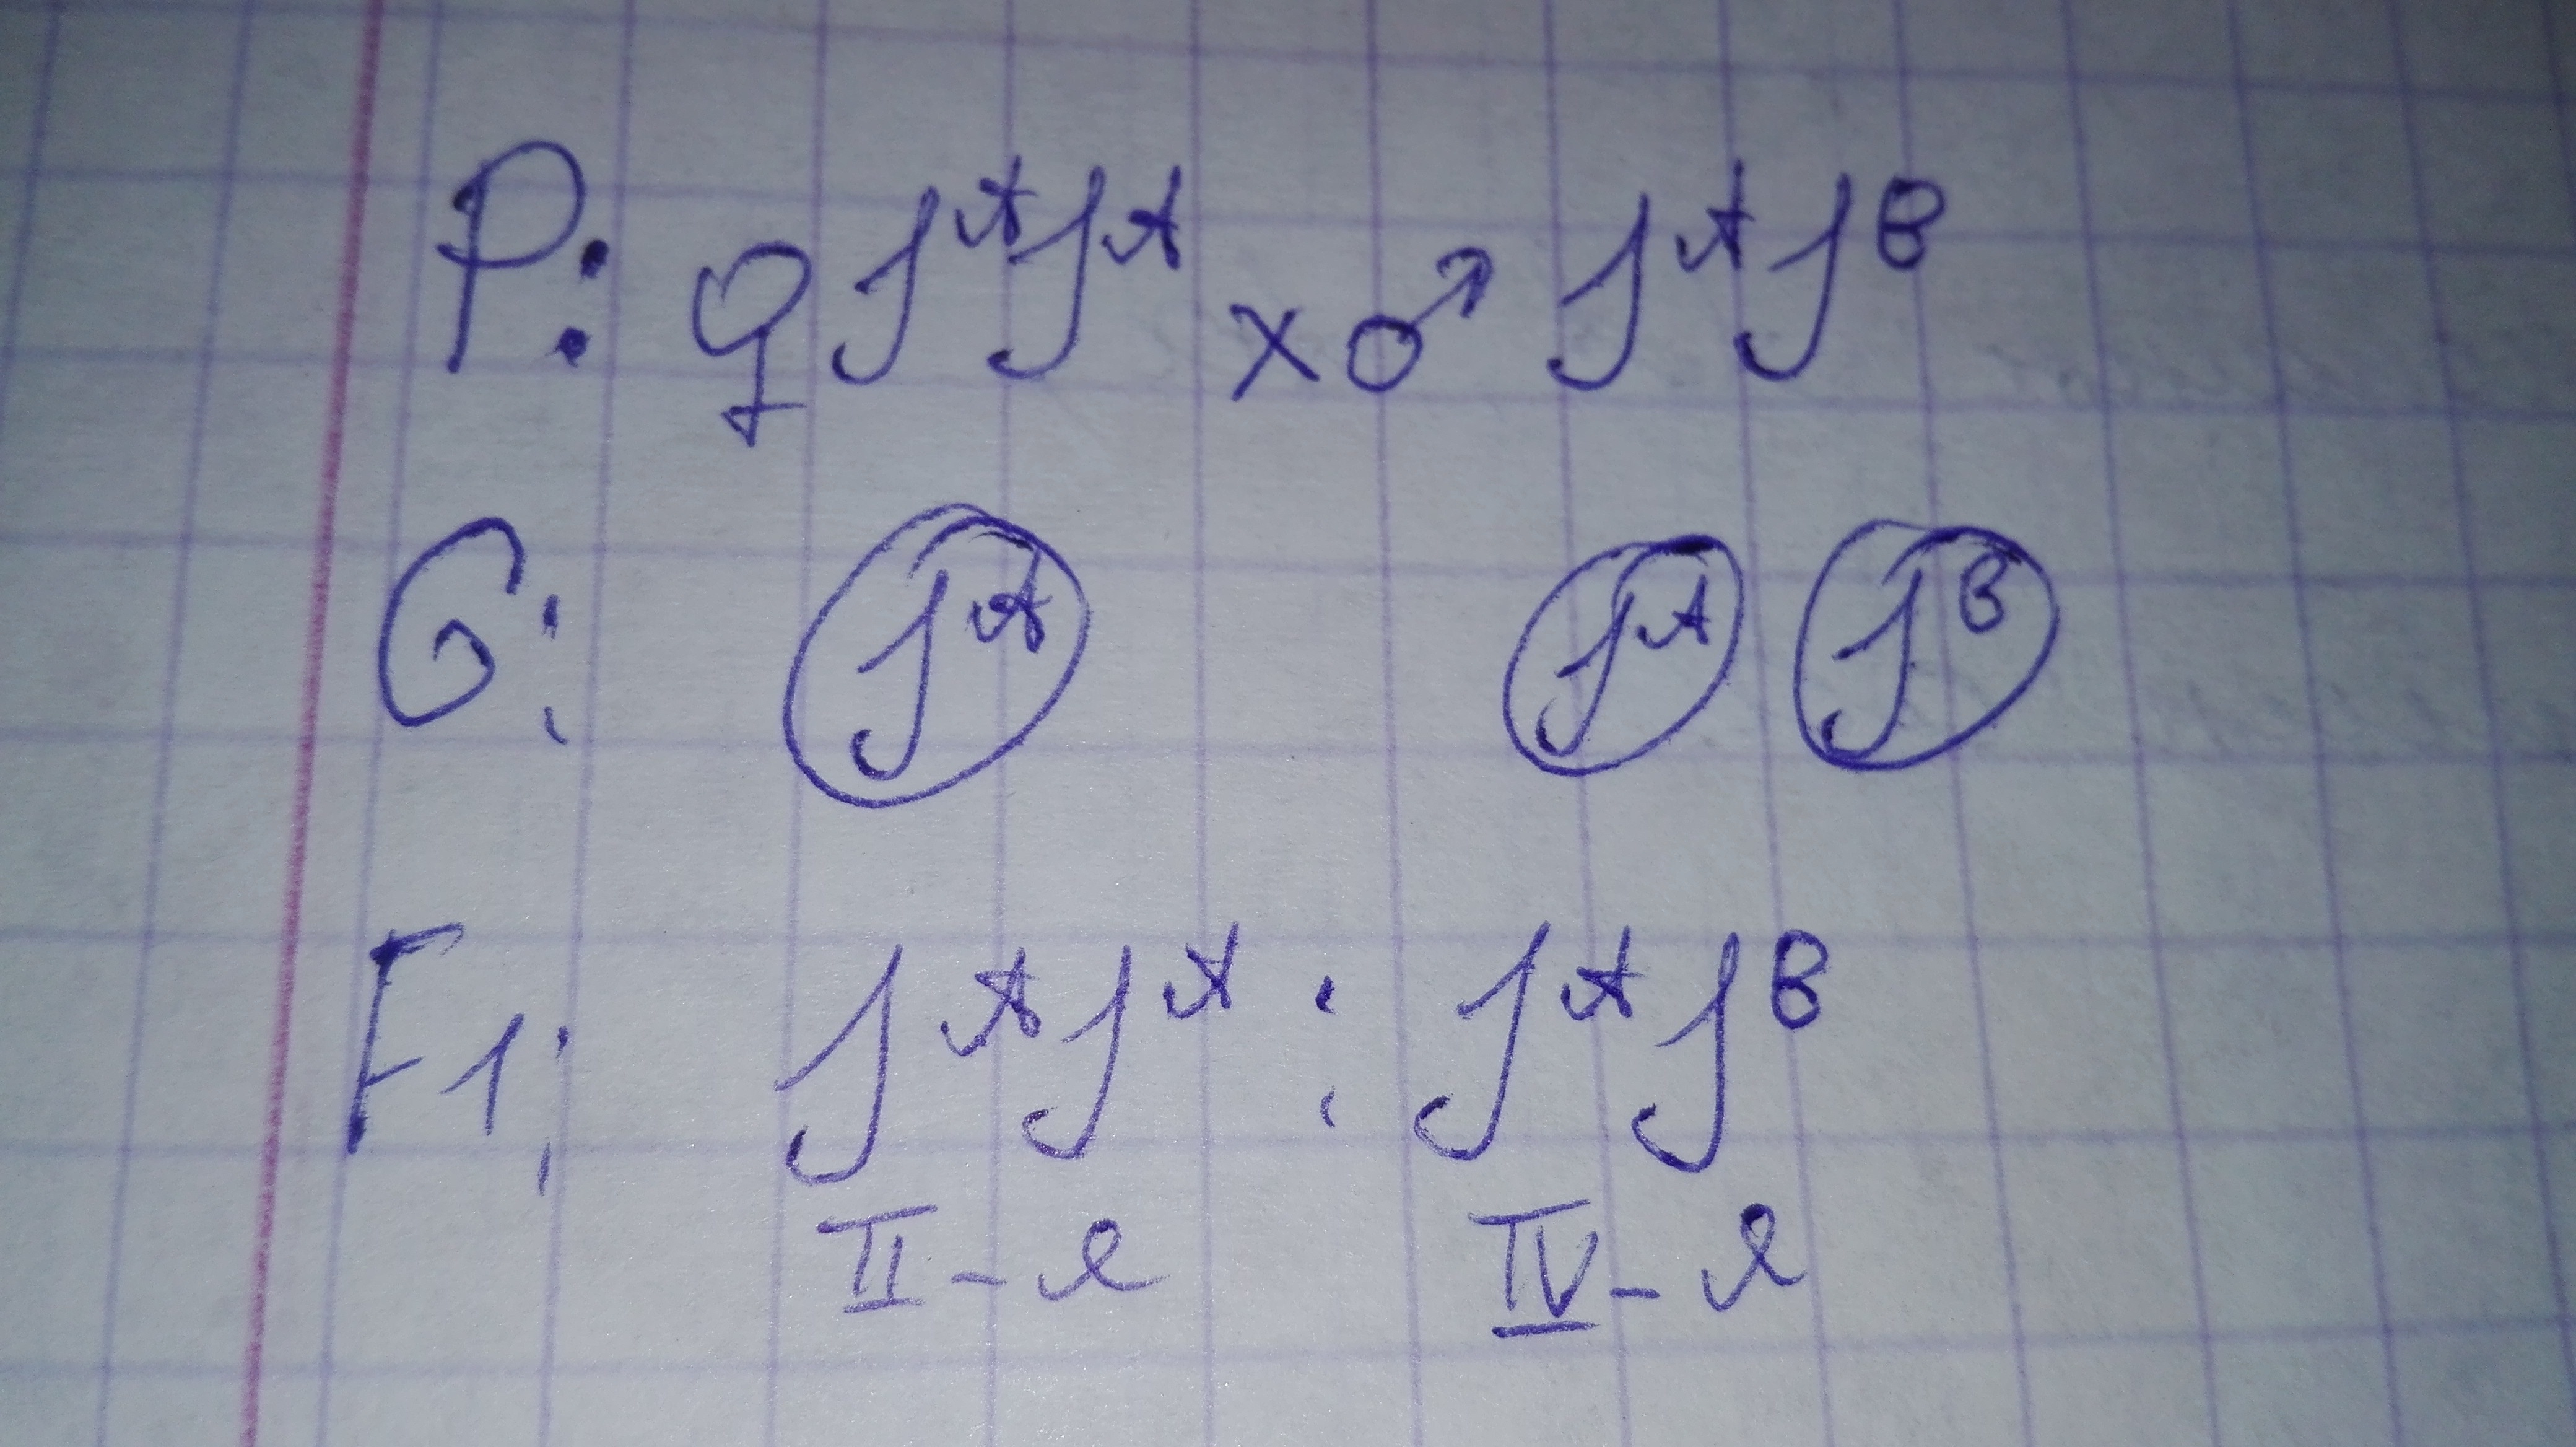 P: ♀ J^A J^A x ♂ J^A J^B
G: J^A J^A J^B
F1: J^A J^A : J^A J^B
II-я IV-я